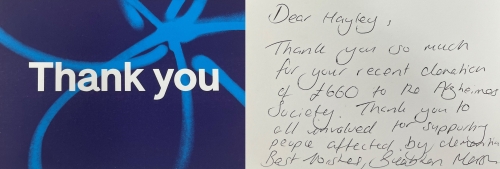 Thank you
Dear Hayley,
Thank you so much
for your recent donation
of £660 to the Alzheimers
Society. Thank you to
all involved for supporting
people affected by dementia
Best Wishes,